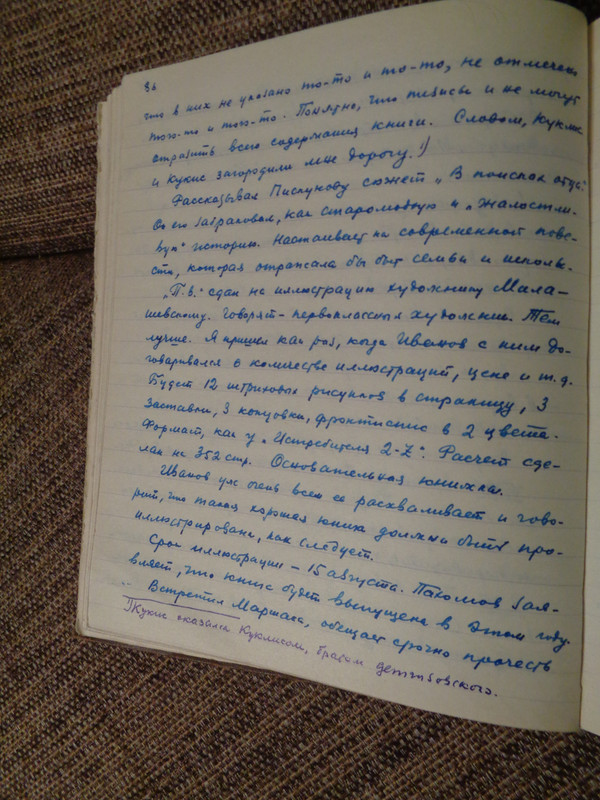 86
что в них не указано то-то и то-то, не отмечено
того-то и того-то. Понятно, что тезисы и не могут
отразить всего содержания книги. Словом, Куклис
и Кукис загородили мне дорогу.1)
Рассказывал Пискунову сюжет „В поисках отца".
Он его забраковал, как старомодную и „жалостли-
вую" историю. Настаивает на современной пове-
сти, которая отражала бы быт семьи и школы.
„П.З." сдан на иллюстрацию художнику Мила-
шевскому. Говорят - первоклассный художник. Тем
лучше. Я пришел как раз, когда Иванов с ним до-
говаривался о количестве иллюстраций, цене и т.д.
Будет 12 штриховых рисунков в страницу, 3
заставки, 3 концовки, фронтиспис в 2 цвета.
Формат, как у „Истребителя 2-Z". Расчет сде-
лан на 352 стр. Основательная книжка.
Иванов уж очень всем ее расхваливает и гово-
рит, что такая хорошая книга должна быть про-
иллюстрирована, как следует.
Срок иллюстрации - 15 августа. Пахомов заяв-
вляет, что книга будет выпущена в этом году.
Встретил Маршака, обещает срочно прочесть
1) Кукис оказался Куклисом, братом детгизовского.